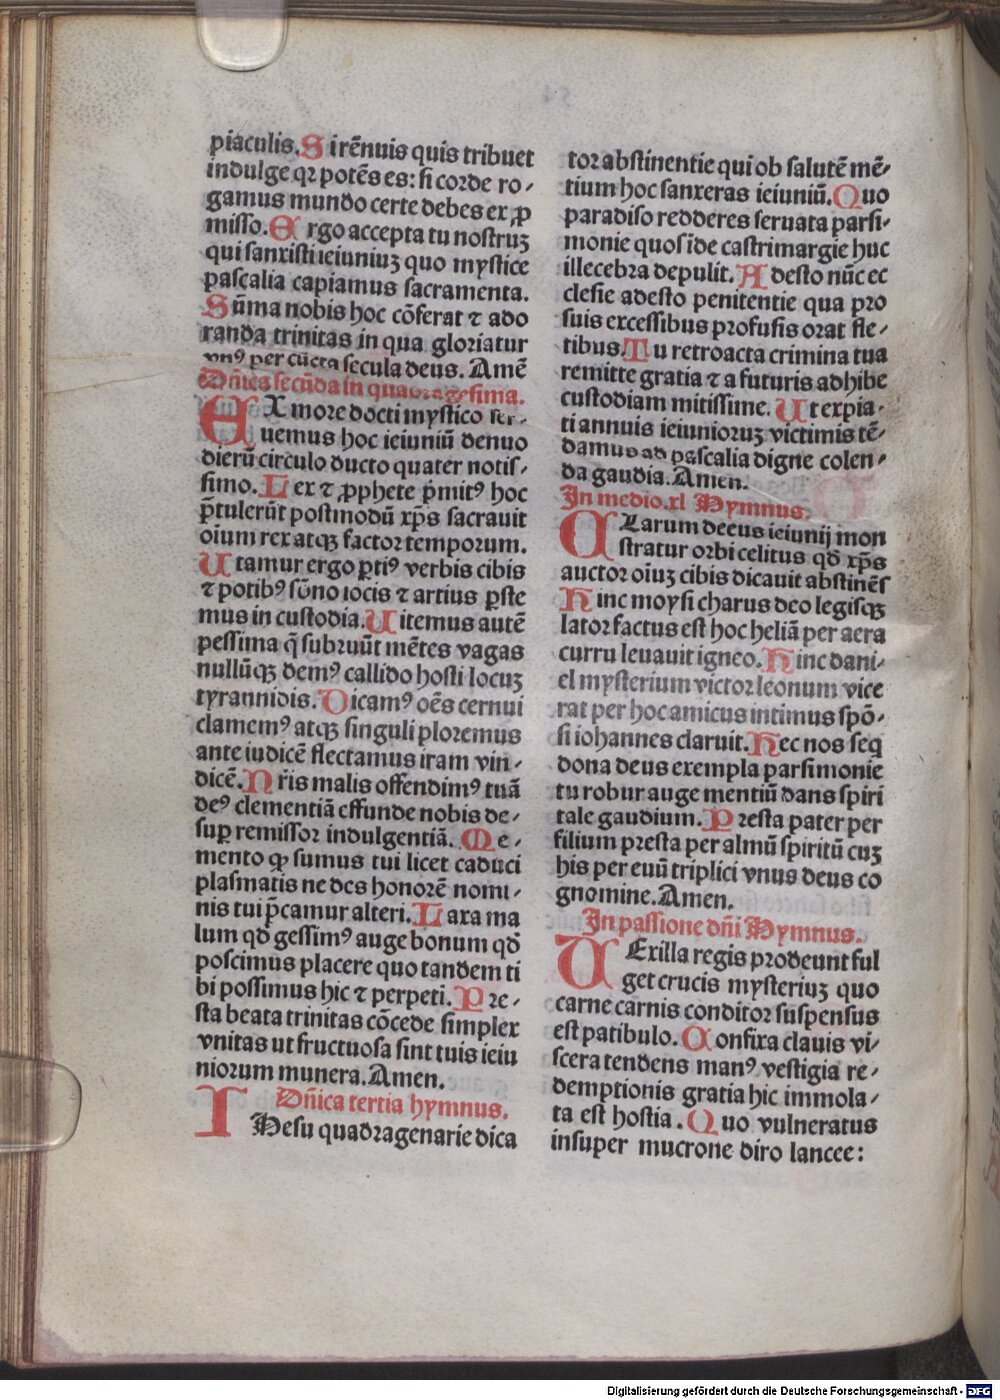 piaculis. Si rēnuis quis tribuet
indulge qꝛ potēs es: si corde ro-
gamus mundo certe debes ex ꝓ
misso. Ergo accepta tu nostruꝫ
qui sanxisti ieiuniuꝫ quo mystice
pascalia capiamus sacramenta.
Sūma nobis hoc cōferat ⁊ ado
randa trinitas in qua gloriatur
vnꝰ per cūcta secula deus. Amē
Dn̄ica secūda in quadragesima.
EX more docti mystico ser-
uemus hoc ieiuniū denuo
dierū circulo ducto quater notis-
simo. Lex ⁊ ꝓphete p̄mitꝰ hoc
p̄tulerūt postmodū xp̄s sacrauit
oīum rex atqꝫ factor temporum.
Utamur ergo ꝑtiꝰ verbis cibis
⁊ potibꝰ sōno iocis ⁊ artius ꝑste
mus in custodia. Uitemus autē
pessima q̄ subruūt mētes vagas
nullūqꝫ demꝰ callido hosti locuꝫ
tyrannidis. Dicamꝰ oēs cernui
clamemꝰ atqꝫ singuli ploremus
ante iudicē flectamus iram vin-
dicē. Nr̄is malis offendimꝰ tuā
deꝰ clementiā effunde nobis de-
suꝑ remissor indulgentiā. Me-
mento ꝙ sumus tui licet caduci
plasmatis ne des honorē nomi-
nis tui p̄camur alteri. Laxa ma
lum qd̄ gessimꝰ auge bonum qd̄
poscimus placere quo tandem ti
bi possimus hic ⁊ perpeti. Pre-
sta beata trinitas cōcede simplex
vnitas ut fructuosa sint tuis ieiu
niorum munera. Amen.
Dn̄ica tertia hymnus.
IHesu quadragenarie dica
tor abstinentie qui ob salutē mē-
tium hoc sanxeras ieiuniū. Quo
paradiso redderes seruata parsi-
monie quos īde castrimargie huc
illecebra depulit. Adesto nūc ec
clesie adesto penitentie qua pro
suis excessibus profusis orat fle-
tibus. Tu retroacta crimina tua
remitte gratia ⁊ a futuris adhibe
custodiam mitissime. Ut expia-
ti annuis ieiunioruꝫ victimis tē-
damus ad pascalia digne colen-
da gaudia. Amen.
In medio .xl Hymnus.
CLarum decus ieiunij mon
stratur orbi celitus qd̄ xp̄s
auctor oīuꝫ cibis dicauit abstinēs
Hinc moysi charus deo legisqꝫ
lator factus est hoc heliā per aera
curru leuauit igneo. Hinc dani-
el mysterium victor leonum vice
rat per hoc amicus intimus spō-
si iohannes claruit. Hec nos seq
dona deus exempla parsimonie
tu robur auge mentiū dans spiri
tale gaudium. Presta pater per
filium presta per almū spiritū cuꝫ
his per euū triplici vnus deus co
gnomine. Amen.
In passione dn̄i Hymnus.
UExilla regis prodeunt ful
get crucis mysteriuꝫ quo
carne carnis conditor suspensus
est patibulo. Confixa clauis vi-
scera tendens manꝰ vestigia re-
demptionis gratia hic immola-
ta est hostia. Quo vulneratus
insuper mucrone diro lancee:
Digitalisierung gefördert durch die Deutsche Forschungsgemeinschaft - DFG